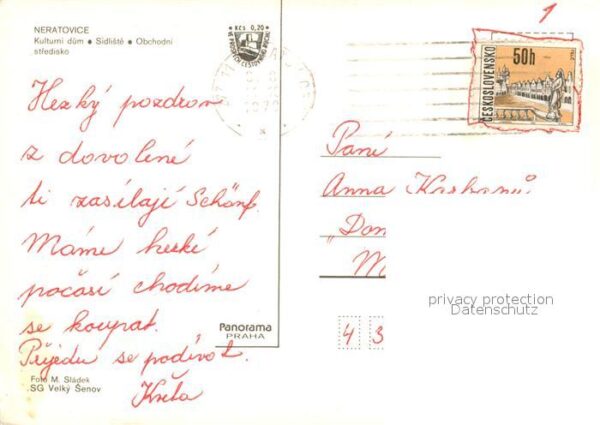 NERATOVICE
Kulturní dům ● Sídliště ● Obchodní
středisko
Kčs 0,20
1
50h
ČESKOSLOVENSKO
Hezký pozdrav
z dovolené
ti zasílají
Máme hezké
počasí chodíme
se koupat.
Přijedu se podívat.
Květa
Paní
Anna
"Dom
M
4 3
Panorama
PRAHA
Foto M. Sládek
SG Velký Šenov
privacy protection
Datenschutz